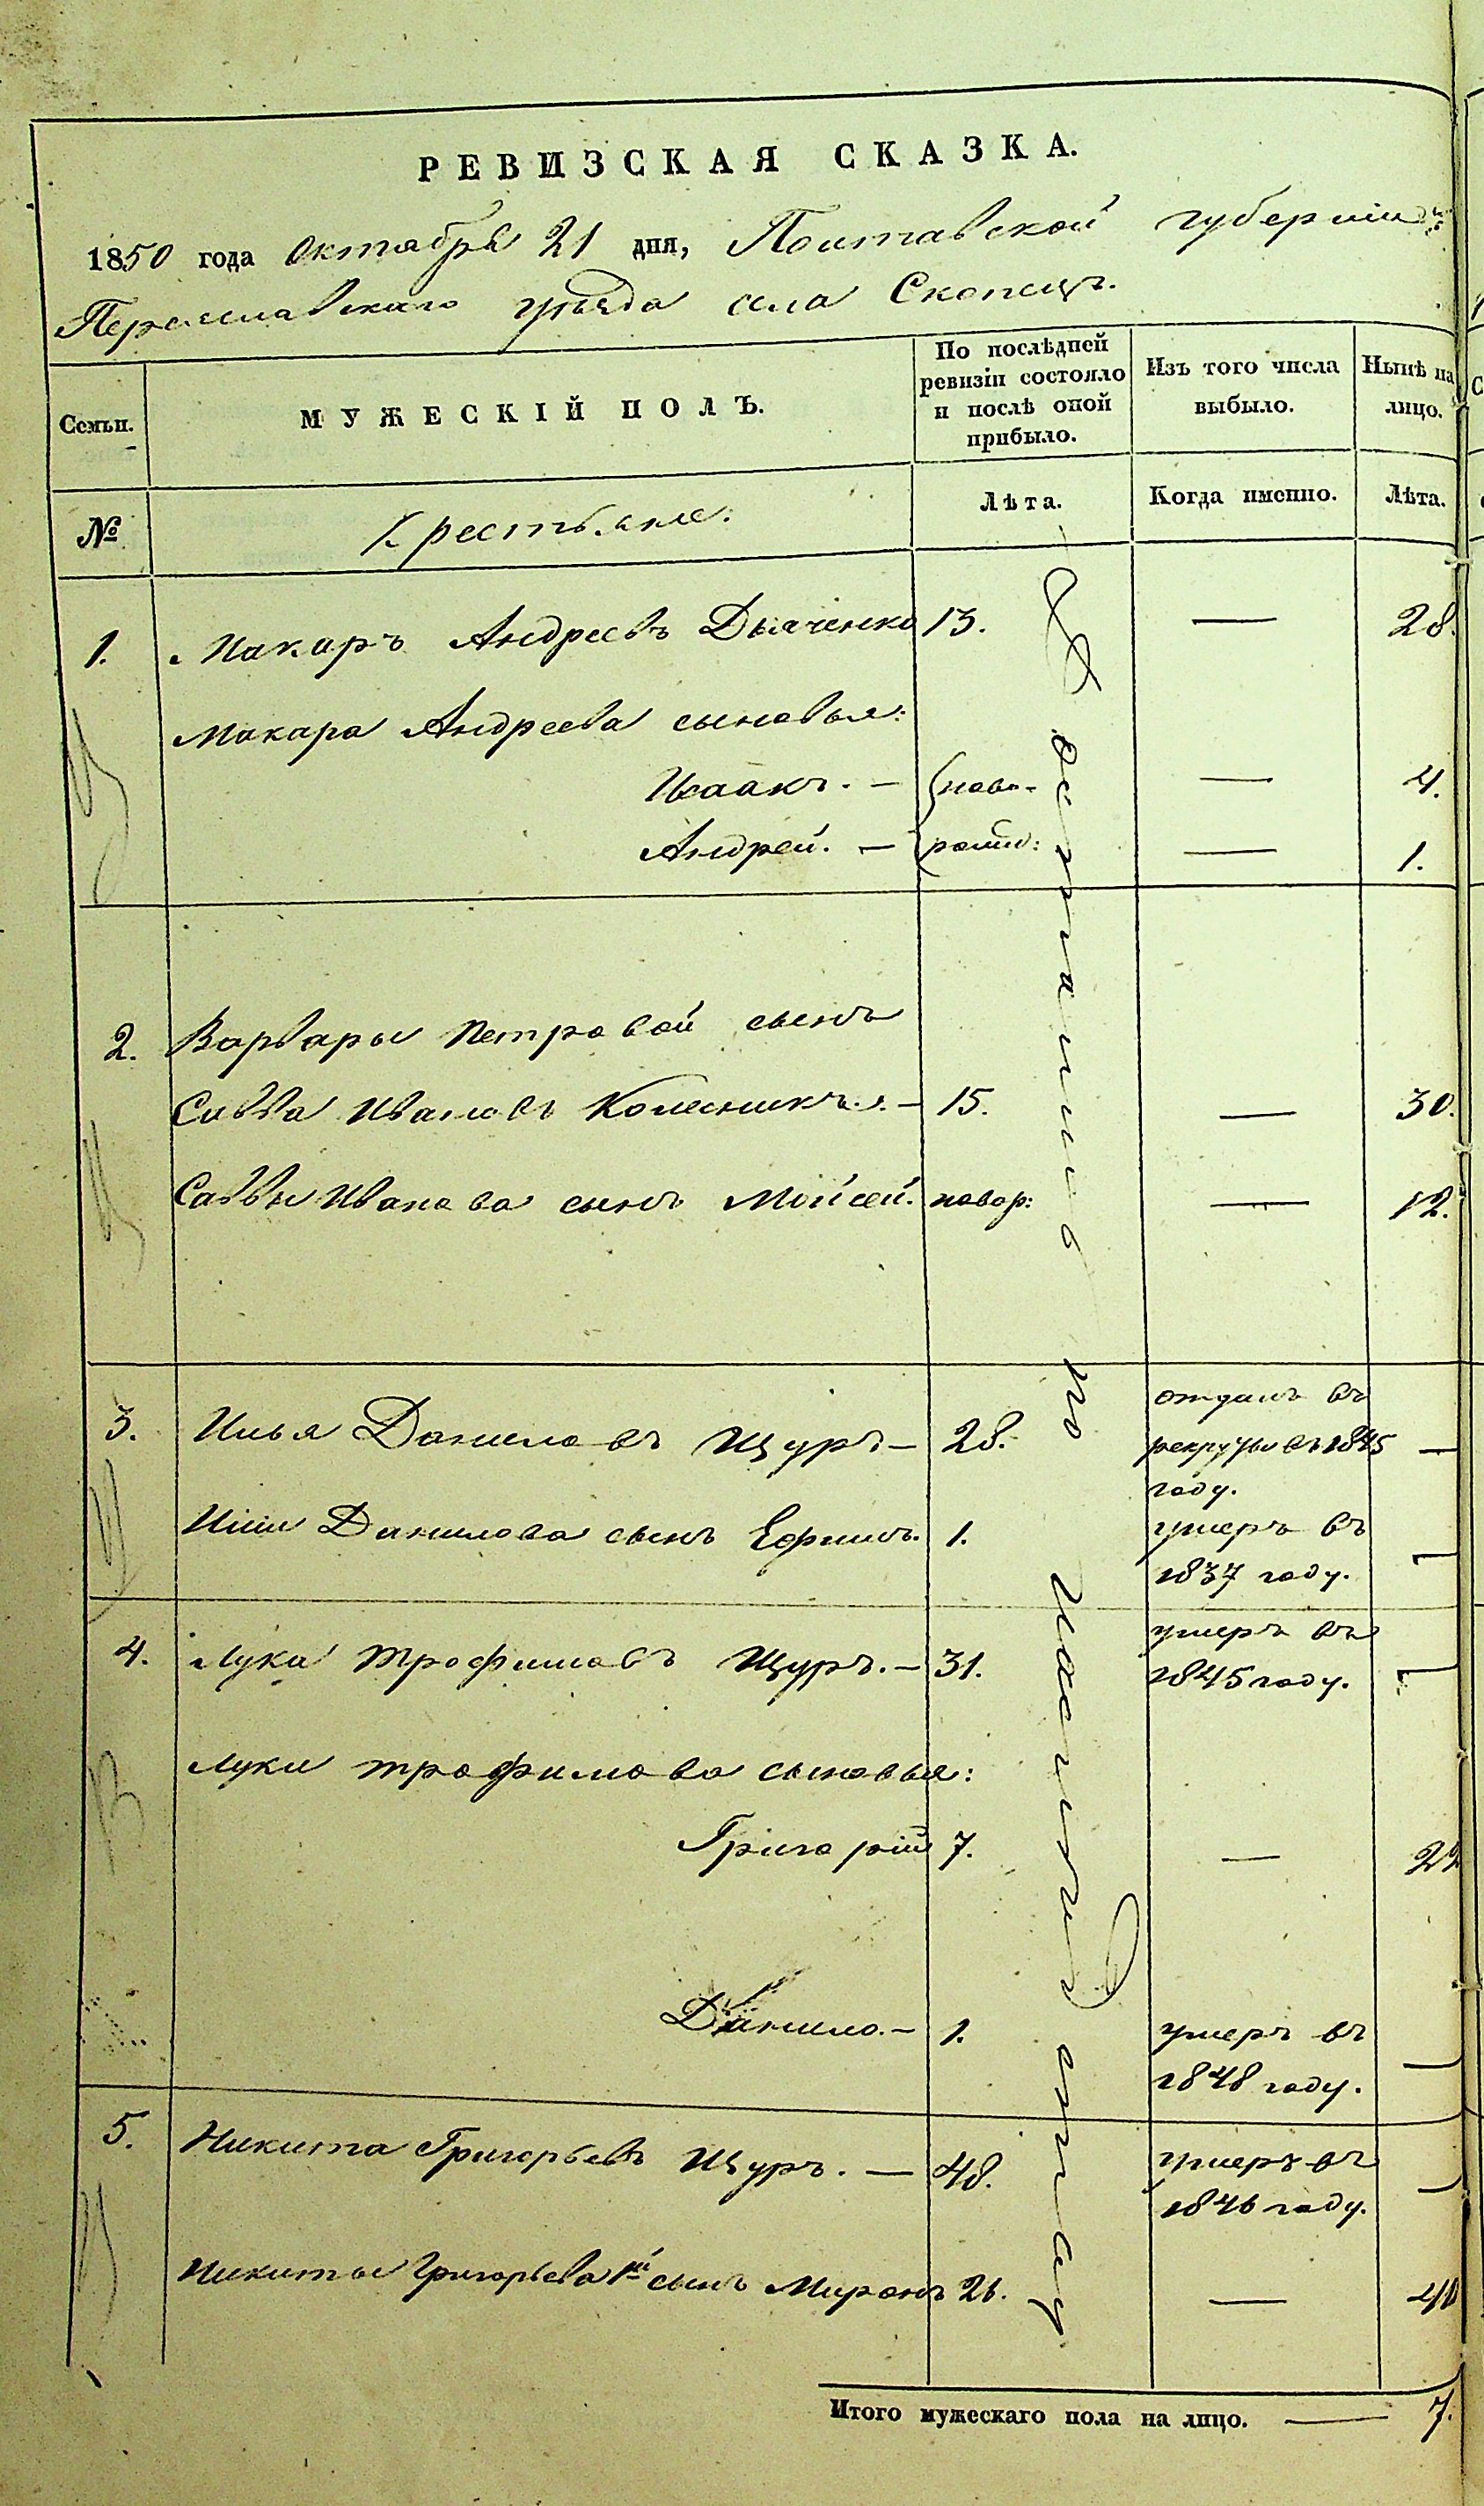 РЕВИЗСКАЯ СКАЗКА.
1850 года Октября 21 дня, Полтавской губерніи
Переяславскаго уѣзда села Скопецъ.
Семьи. МУЖЕСКІЙ ПОЛЪ. По послѣдней ревизіи состояло и послѣ оной прибыло. Изъ того числа выбыло. Нынѣ на лицо.
№ Крестьяне: Лѣта. Когда именно. Лѣта.
1. Макаръ Андреевъ Дьяченко 13. — 28.
Макара Андреева сыновья:
Исаакъ. — ново- — 4.
Андрей. — рожд: — 1.
2. Варвары Петровой сынъ
Савва Ивановъ Колесникъ. — 15. — 30.
Саввы Иванова сынъ Мойсей. новор: — 12.
3. Илья Даниловъ Щуръ — 28. отданъ въ
рекруты въ 1845 —
году.
Ильи Данилова сынъ Ефимъ. 1. умеръ въ
1837 году. —
4. Лука Трофимовъ Щуръ. — 31. умеръ въ
1845 году. —
Луки Трофимова сыновья:
Григорій 7. — 22
Данило. — 1. умеръ въ
1848 году. —
5. Никита Григорьевъ Щуръ. — 48. умеръ въ
1846 году. —
Никиты Григорьева 1й сынъ Миронъ 26. — 41
Итого мужескаго пола на лицо. — 7.